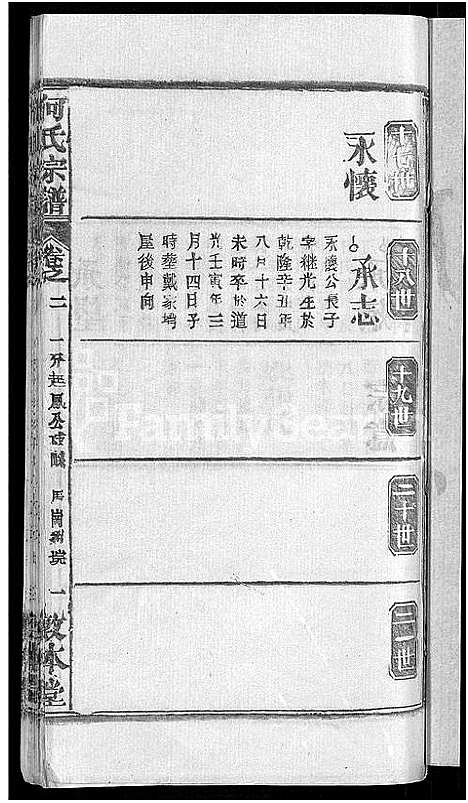 十七世
永懷
十八世
承志
永懷公長子
字繼光生於
乾隆辛丑年
八月十六日
未時卒於道
光壬寅年三
月十四日子
時葬戴家塆
屋後申向
十九世
二十世
二一世
何氏宗譜
卷之二
一升起鳳公
一
敦本堂